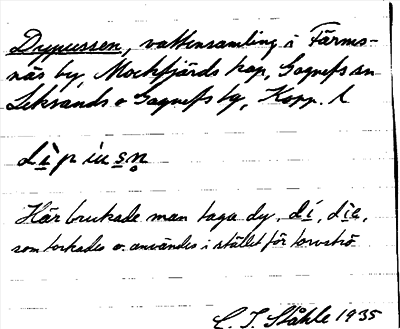 Dypussen, vattensamling i Färms-
näs by, Mockfjärds kap, Gagnefs sn
Leksands o Gagnefs tg, Kopp. l
dìpüsn̥
Här brukade man taga dy, dí, die,
som torkades o. användes i stället för torvströ
C. I. Ståhle 1935